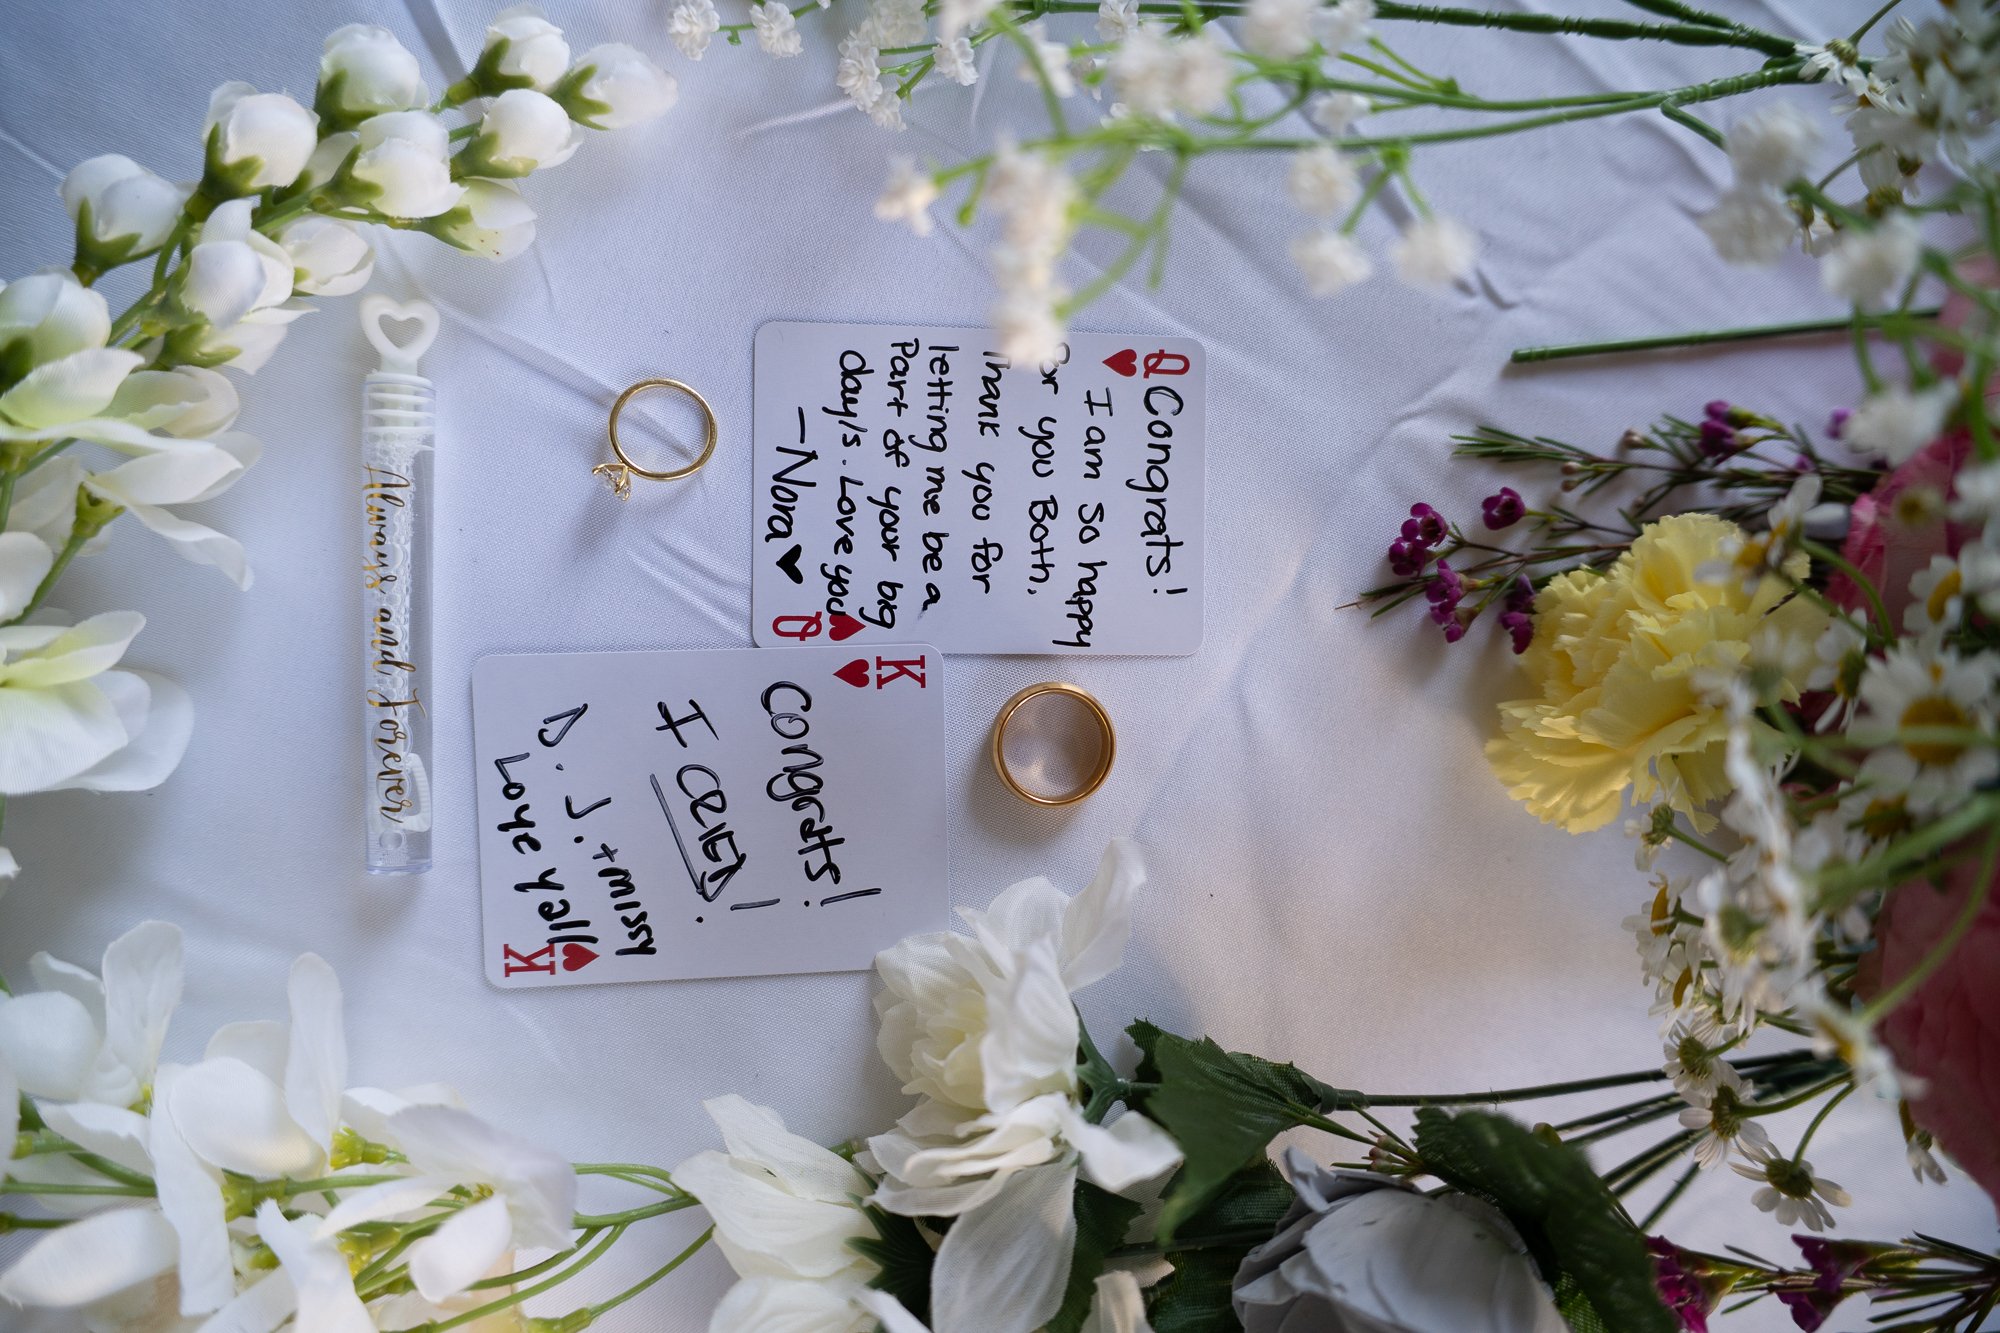 Q
Congrats!
I am So happy
For you Both,
Thank you for
letting me be a
Part of your big
day/s. Love you
—Nora
Q
K
Congrats!
I CRIED!
D.J. + missy
Love y'all
K
Always and Forever